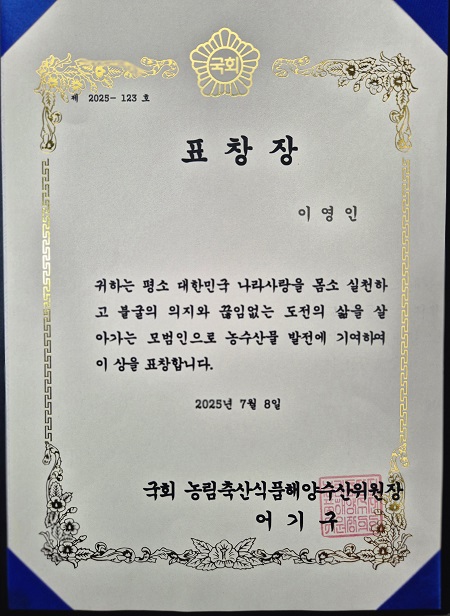 국회
제 2025- 123 호
표창장
이영인
귀하는 평소 대한민국 나라사랑을 몸소 실천하
고 불굴의 의지와 끊임없는 도전의 삶을 살
아가는 모범인으로 농수산물 발전에 기여하여
이 상을 표창합니다.
2025년 7월 8일
국회 농림축산식품해양수산위원장
어기구